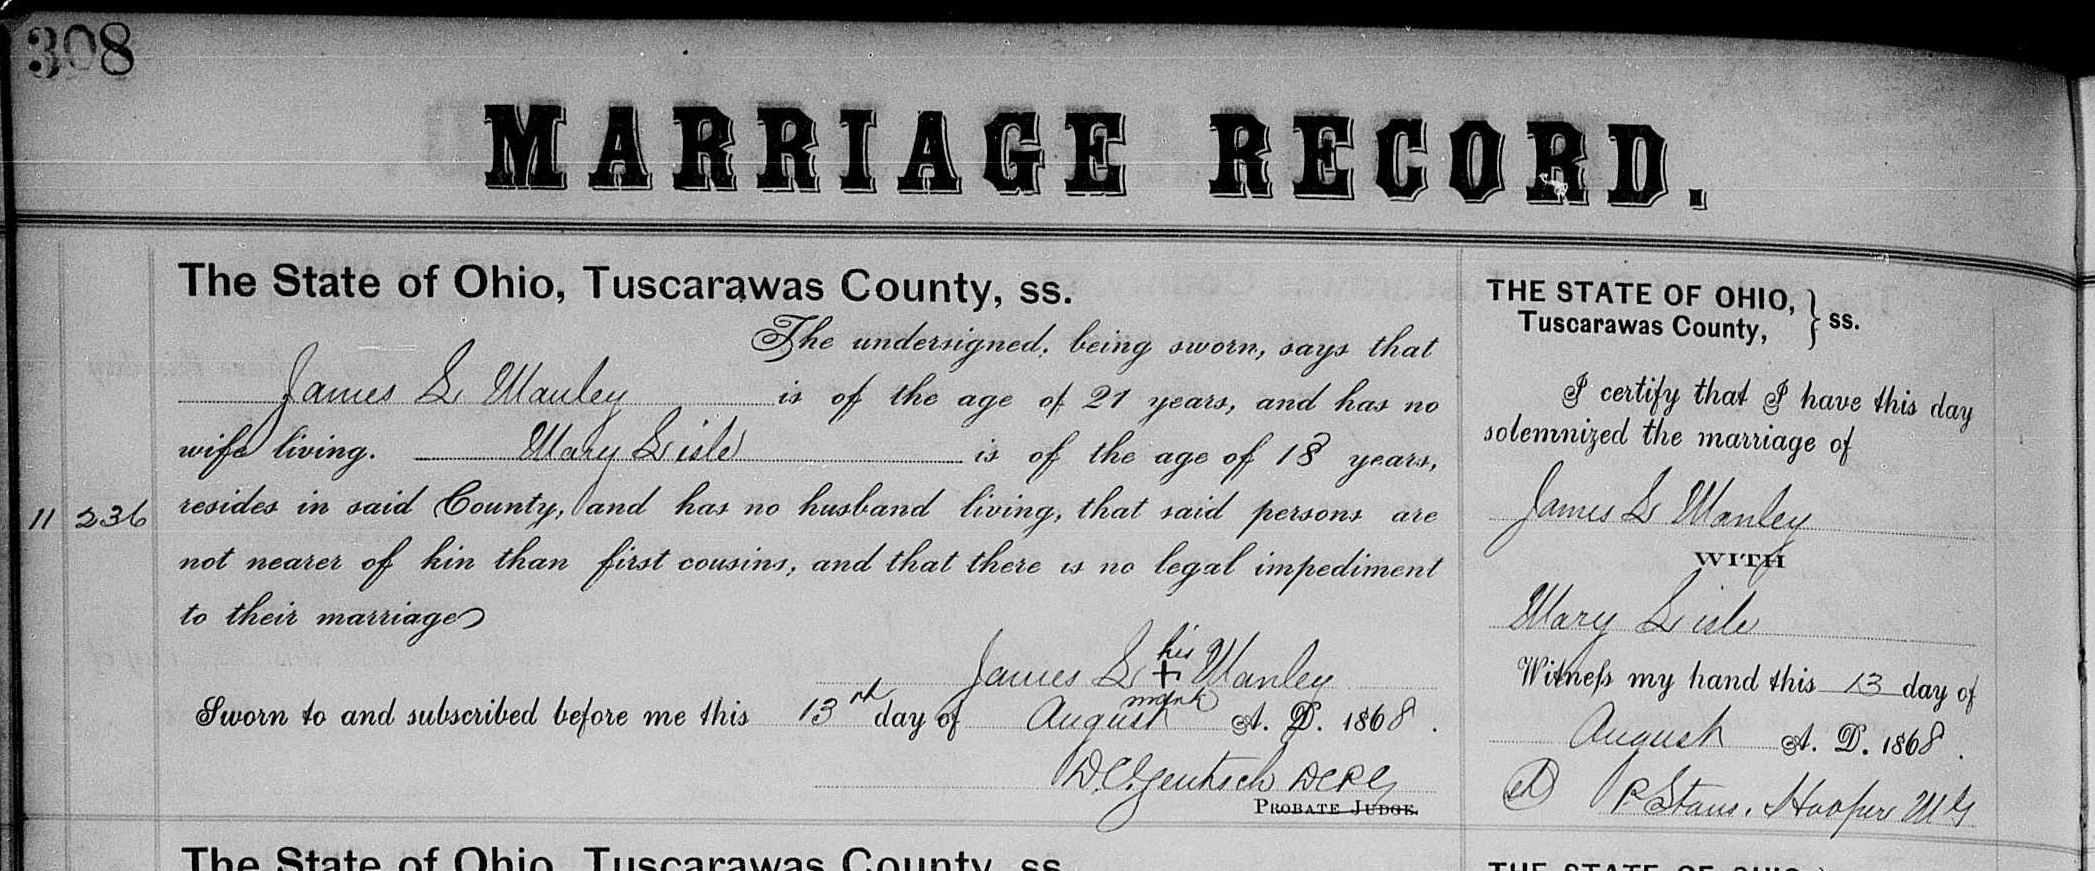 308
MARRIAGE RECORD.
The State of Ohio, Tuscarawas County, ss.
The undersigned, being sworn, says that
James L Manley is of the age of 21 years, and has no
wife living. Mary Lisle is of the age of 18 years,
11 236 resides in said County, and has no husband living, that said persons are
not nearer of kin than first cousins, and that there is no legal impediment
to their marriage
his
James L + Manley
mark
Sworn to and subscribed before me this 13th day of August A. D. 1868.
PROBATE JUDGE.
THE STATE OF OHIO,
Tuscarawas County, } ss.
I certify that I have this day
solemnized the marriage of
James L Manley
WITH
Mary Lisle
Witness my hand this 13 day of
August A. D. 1868.
Hooper MG
The State of Ohio, Tuscarawas County, ss.
THE STATE OF OHIO,